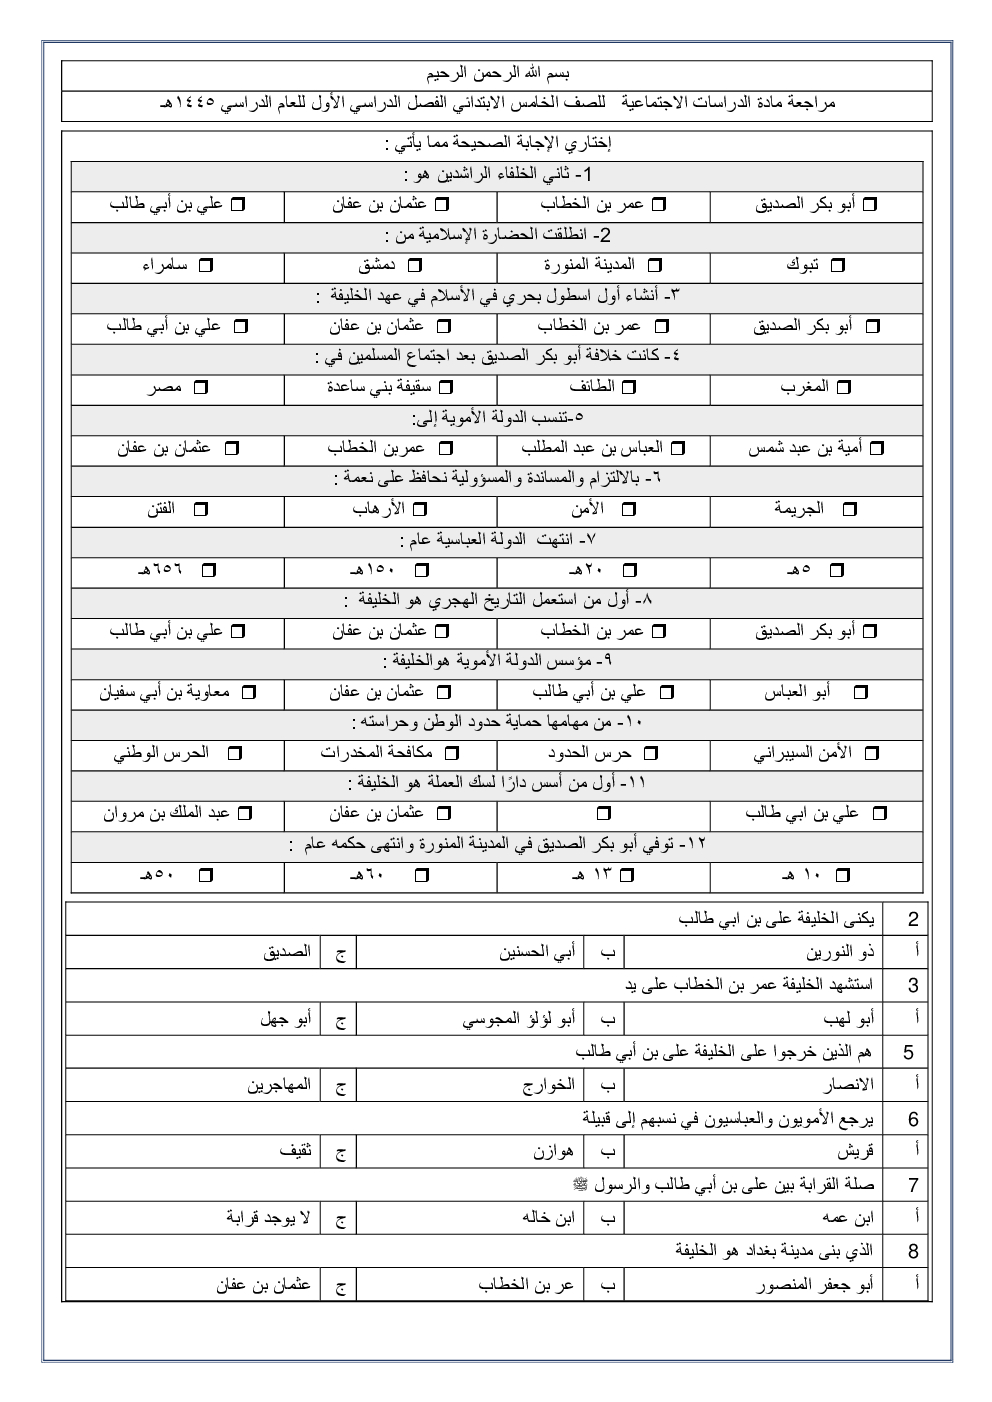 بسم الله الرحمن الرحيم
مراجعة مادة الدراسات الاجتماعية للصف الخامس الابتدائي الفصل الدراسي الأول للعام الدراسي ١٤٤٥هـ
إختاري الإجابة الصحيحة مما يأتي :
1- ثاني الخلفاء الراشدين هو :
❒ أبو بكر الصديق ❒ عمر بن الخطاب ❒ عثمان بن عفان ❒ علي بن أبي طالب
2- انطلقت الحضارة الإسلامية من :
❒ تبوك ❒ المدينة المنورة ❒ دمشق ❒ سامراء
٣- أنشاء أول اسطول بحري في الأسلام في عهد الخليفة :
❒ أبو بكر الصديق ❒ عمر بن الخطاب ❒ عثمان بن عفان ❒ علي بن أبي طالب
٤- كانت خلافة أبو بكر الصديق بعد اجتماع المسلمين في :
❒ المغرب ❒ الطائف ❒ سقيفة بني ساعدة ❒ مصر
٥-تنسب الدولة الأموية إلى:
❒ أمية بن عبد شمس ❒ العباس بن عبد المطلب ❒ عمربن الخطاب ❒ عثمان بن عفان
٦- بالالتزام والمساندة والمسؤولية نحافظ على نعمة :
❒ الجريمة ❒ الأمن ❒ الأرهاب ❒ الفتن
٧- انتهت الدولة العباسية عام :
❒ ٥هـ ❒ ٢٠هـ ❒ ١٥٠هـ ❒ ٦٥٦هـ
٨- أول من استعمل التاريخ الهجري هو الخليفة :
❒ أبو بكر الصديق ❒ عمر بن الخطاب ❒ عثمان بن عفان ❒ علي بن أبي طالب
٩- مؤسس الدولة الأموية هوالخليفة :
❒ أبو العباس ❒ علي بن أبي طالب ❒ عثمان بن عفان ❒ معاوية بن أبي سفيان
١٠- من مهامها حماية حدود الوطن وحراسته :
❒ الأمن السيبراني ❒ حرس الحدود ❒ مكافحة المخدرات ❒ الحرس الوطني
١١- أول من أسس دارًا لسك العملة هو الخليفة :
❒ علي بن ابي طالب ❒ ❒ عثمان بن عفان ❒ عبد الملك بن مروان
١٢- توفي أبو بكر الصديق في المدينة المنورة وانتهى حكمه عام :
❒ ١٠ هـ ❒ ١٣ هـ ❒ ٦٠هـ ❒ ٥٠هـ
2 يكنى الخليفة على بن ابي طالب
أ ذو النورين ب أبي الحسنين ج الصديق
3 استشهد الخليفة عمر بن الخطاب على يد
أ أبو لهب ب أبو لؤلؤ المجوسي ج أبو جهل
5 هم الذين خرجوا على الخليفة على بن أبي طالب
أ الانصار ب الخوارج ج المهاجرين
6 يرجع الأمويون والعباسيون في نسبهم إلى قبيلة
أ قريش ب هوازن ج ثقيف
7 صلة القرابة بين على بن أبي طالب والرسول ﷺ
أ ابن عمه ب ابن خاله ج لا يوجد قرابة
8 الذي بنى مدينة بغداد هو الخليفة
أ أبو جعفر المنصور ب عر بن الخطاب ج عثمان بن عفان